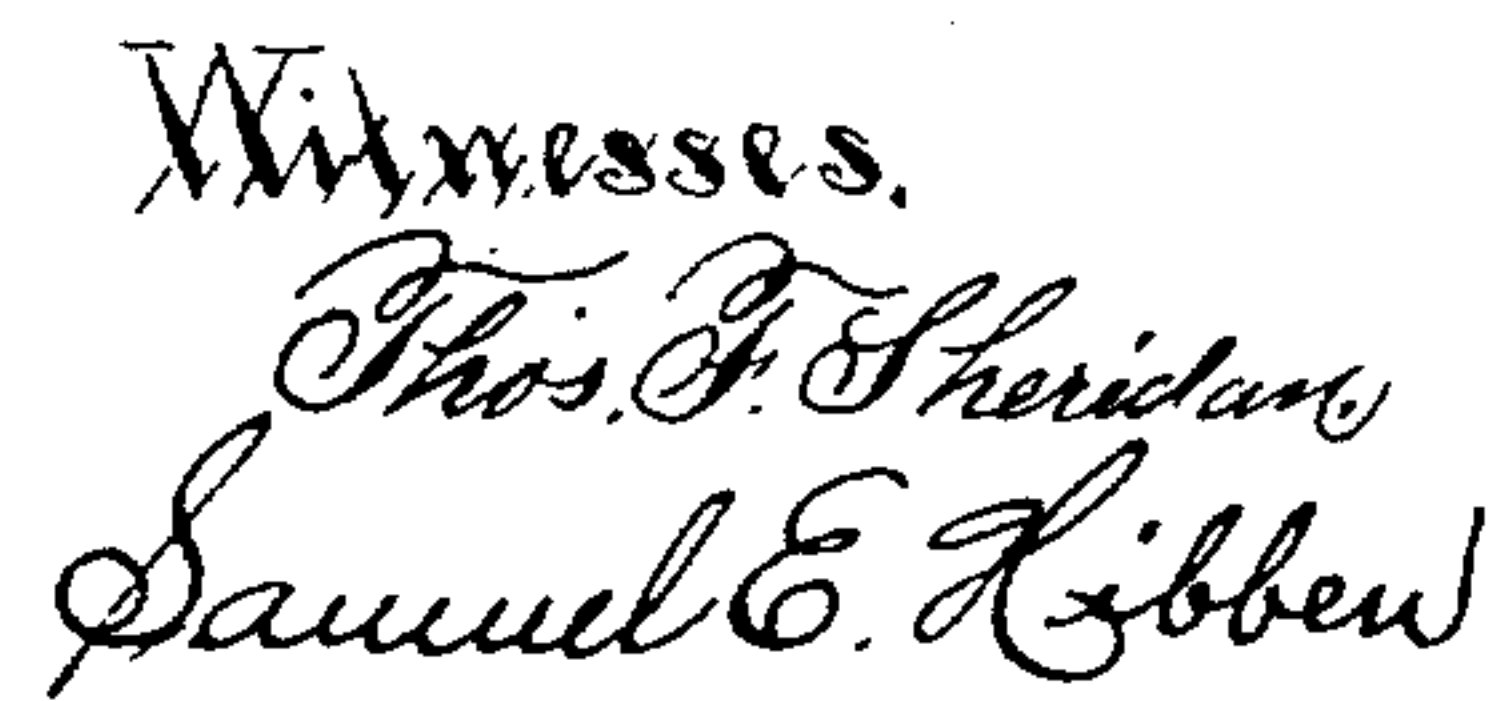 Witnesses.
Thos. F. Sheridan
Samuel E. Hibben